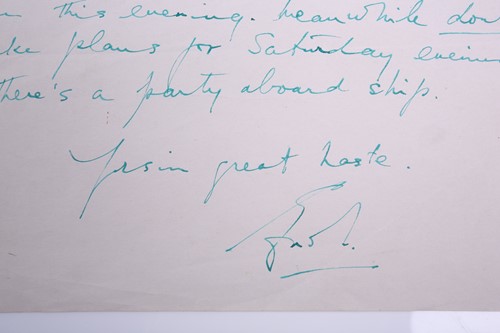 this evening. Meanwhile
plans for Saturday
there's a party aboard ship.
Yrs in great haste.